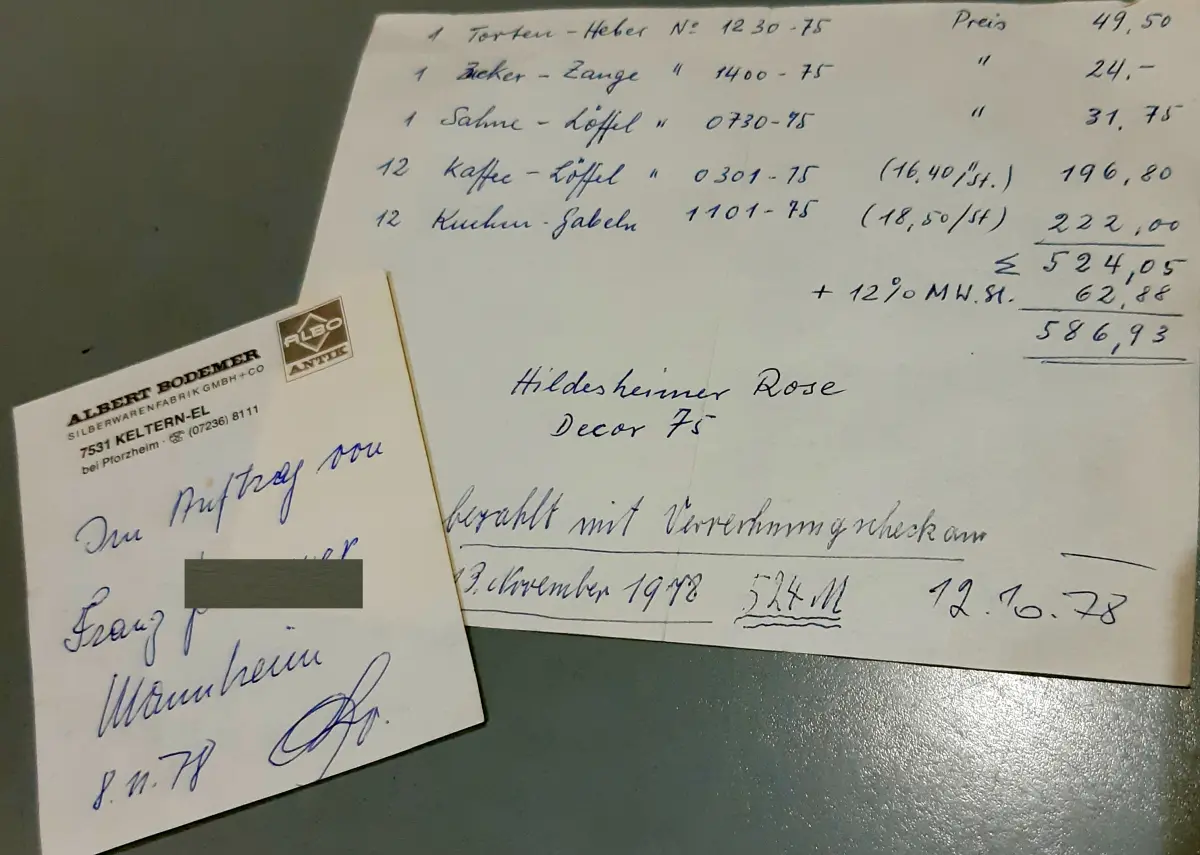 1 Torten-Heber No 1230-75 Preis 49,50
1 Zucker-Zange " 1400-75 " 24.-
1 Sahne-Löffel " 0730-75 " 31,75
12 Kaffee-Löffel " 0301-75 (16,40/St.) " 196,80
12 Kuchen-Gabeln 1101-75 (18,50/St) 222,00
Σ 524,05
+ 12% MW.St. 62,88
586,93
Hildesheimer Rose
Decor 75
bezahlt mit Verrechnungscheck am
13. November 1978 524 M 12.10.78
ALBO
ANTIK
ALBERT BODEMER
SILBERWARENFABRIK GMBH+CO
7531 KELTERN-EL
bei Pforzheim · ☏ (07236) 8111
Im Auftrag von
Franz
Mannheim
8.11.78